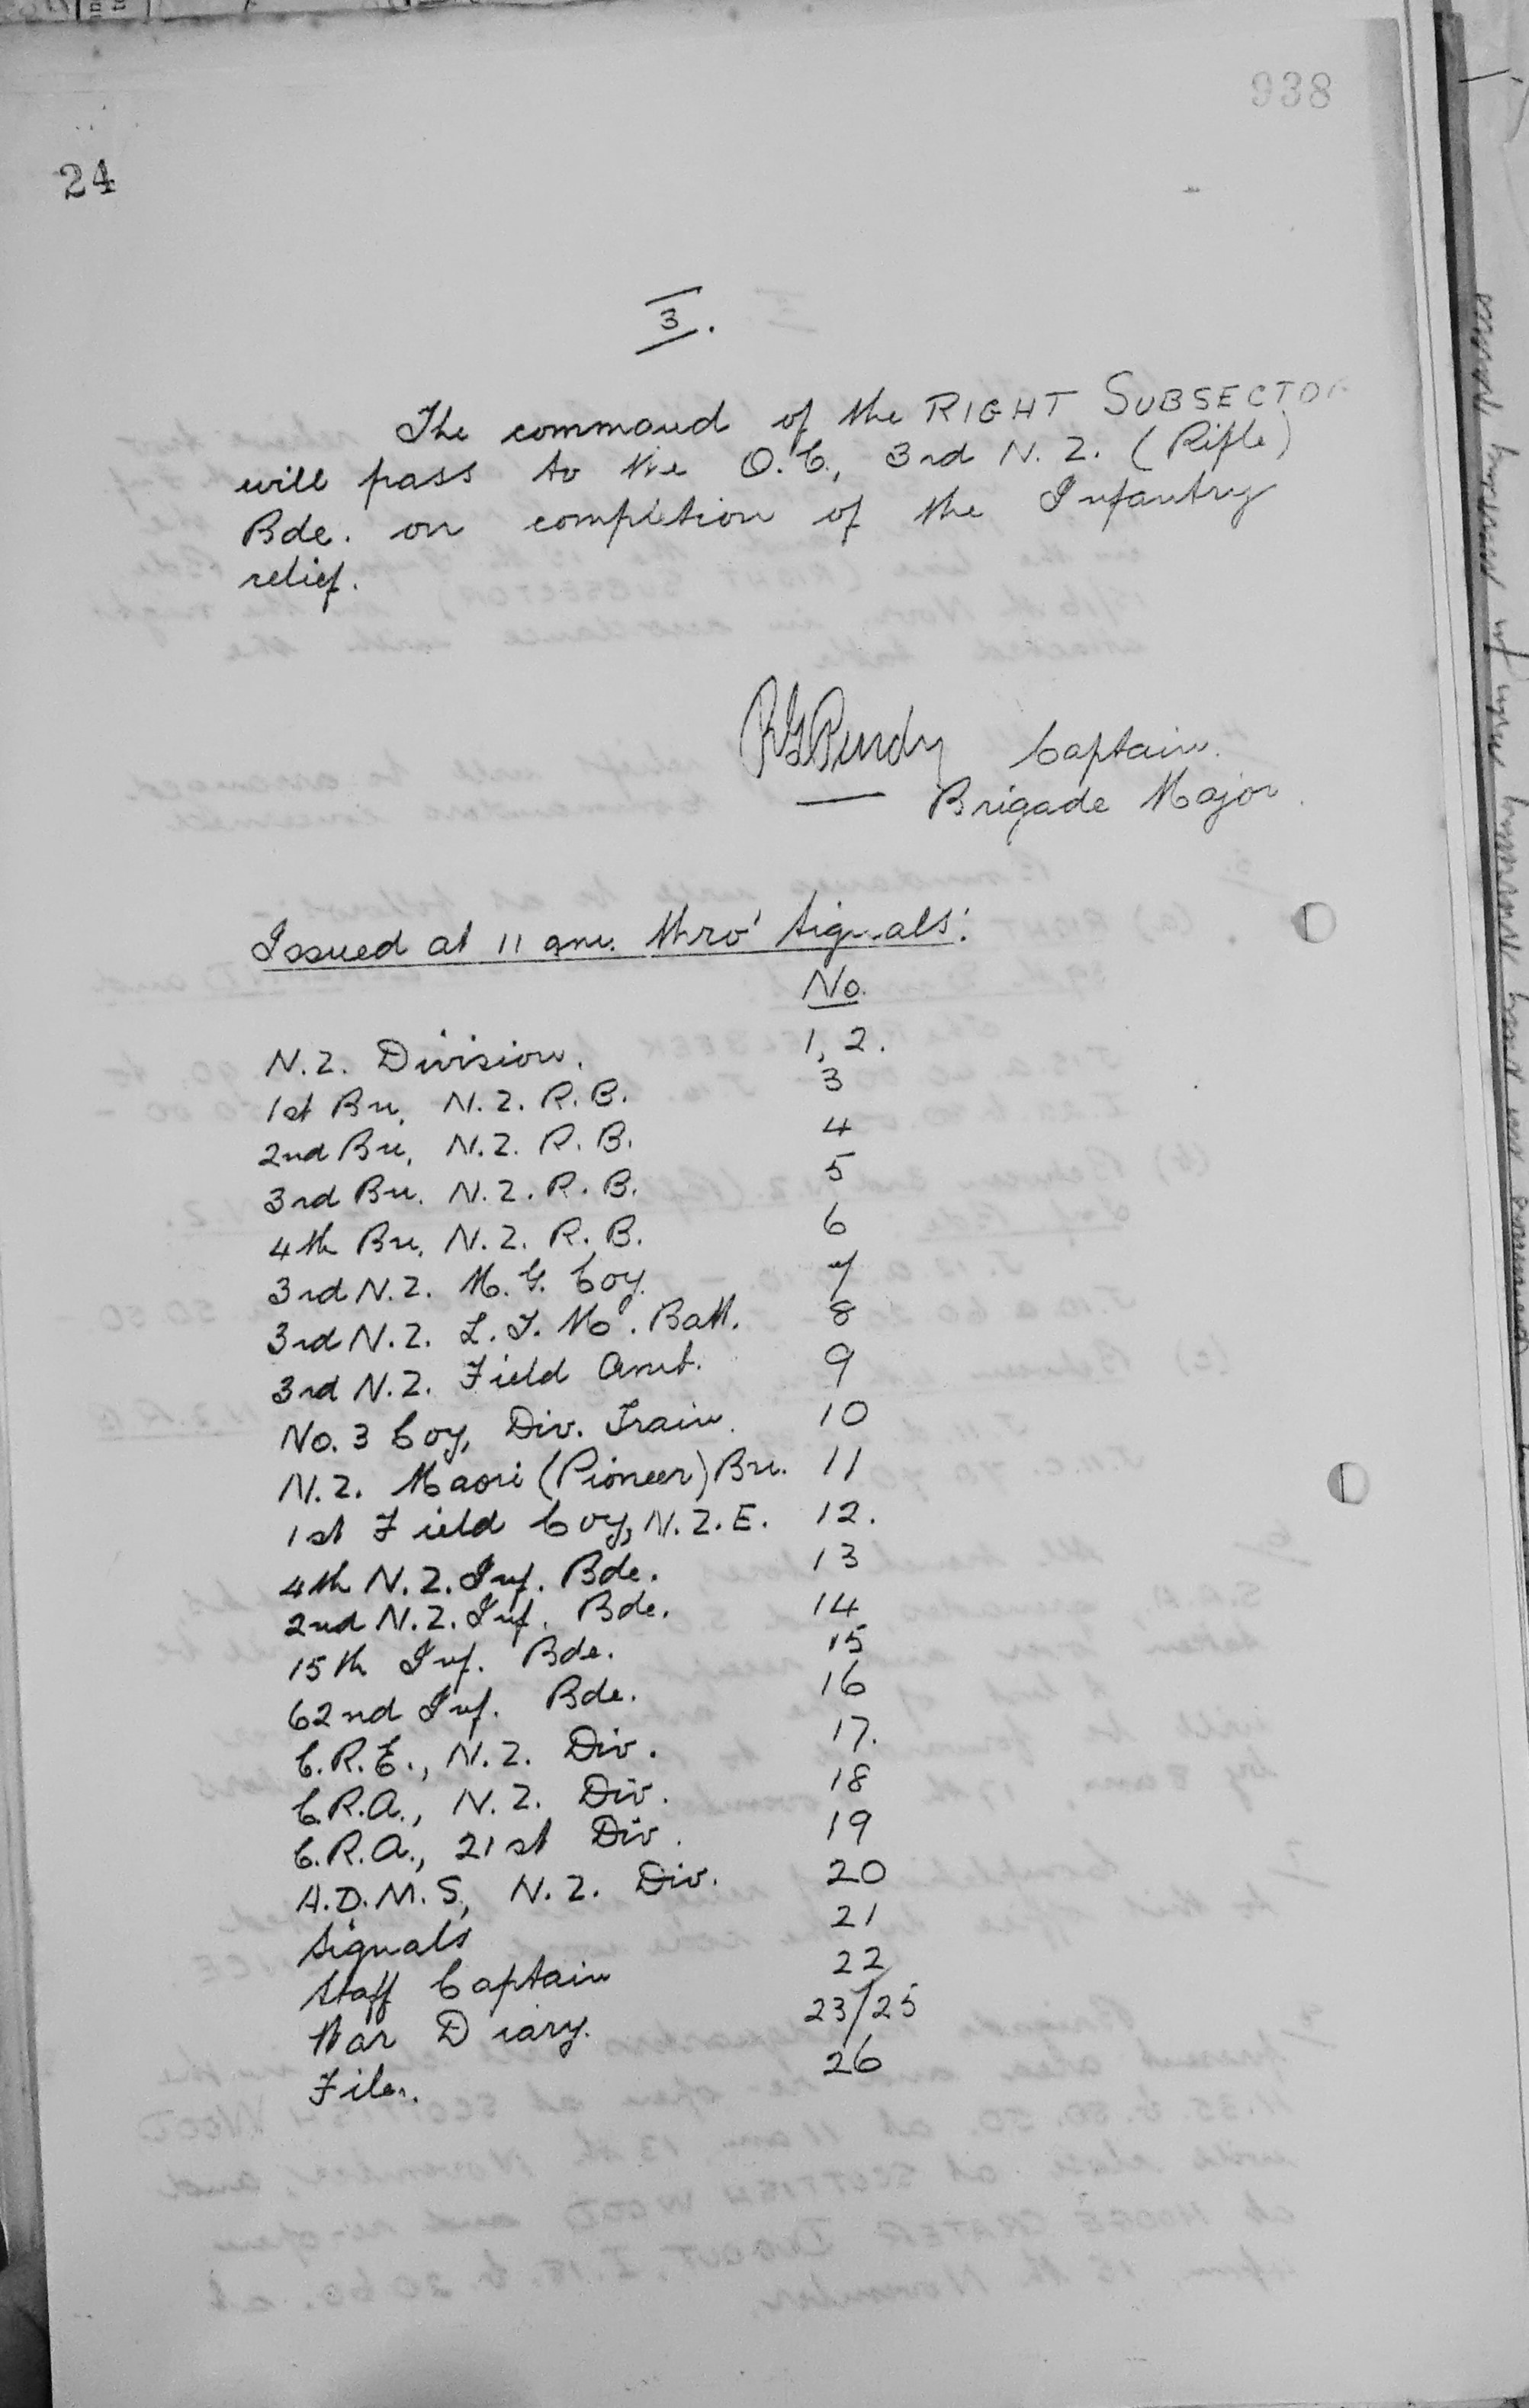 938
24
3.
The command of the RIGHT SUBSECTOR
will pass to the O.C., 3rd N.Z. (Rifle)
Bde. on completion of the Infantry
relief.
Captain.
Brigade Major.
Issued at 11 am. thro' Signals:
No.
N.Z. Division. 1, 2.
1st Bn, N.Z.R.B. 3
2nd Bn, N.Z.R.B. 4
3rd Bn. N.Z.R.B. 5
4th Bn, N.Z.R.B. 6
3rd N.Z. M.G. Coy. 7
3rd N.Z. L.T.Mo. Batt. 8
3rd N.Z. Field Amb. 9
No. 3 Coy, Div. Train. 10
N.Z. Maori (Pioneer) Bn. 11
1st Field Coy, N.Z.E. 12.
4th N.Z. Inf. Bde. 13
2nd N.Z. Inf. Bde. 14
15th Inf. Bde. 15
62nd Inf. Bde. 16
C.R.E., N.Z. Div. 17.
C.R.A., N.Z. Div. 18
C.R.A., 21st Div. 19
A.D.M.S, N.Z. Div. 20
Signals 21
Staff Captain 22
War Diary. 23/25
File. 26